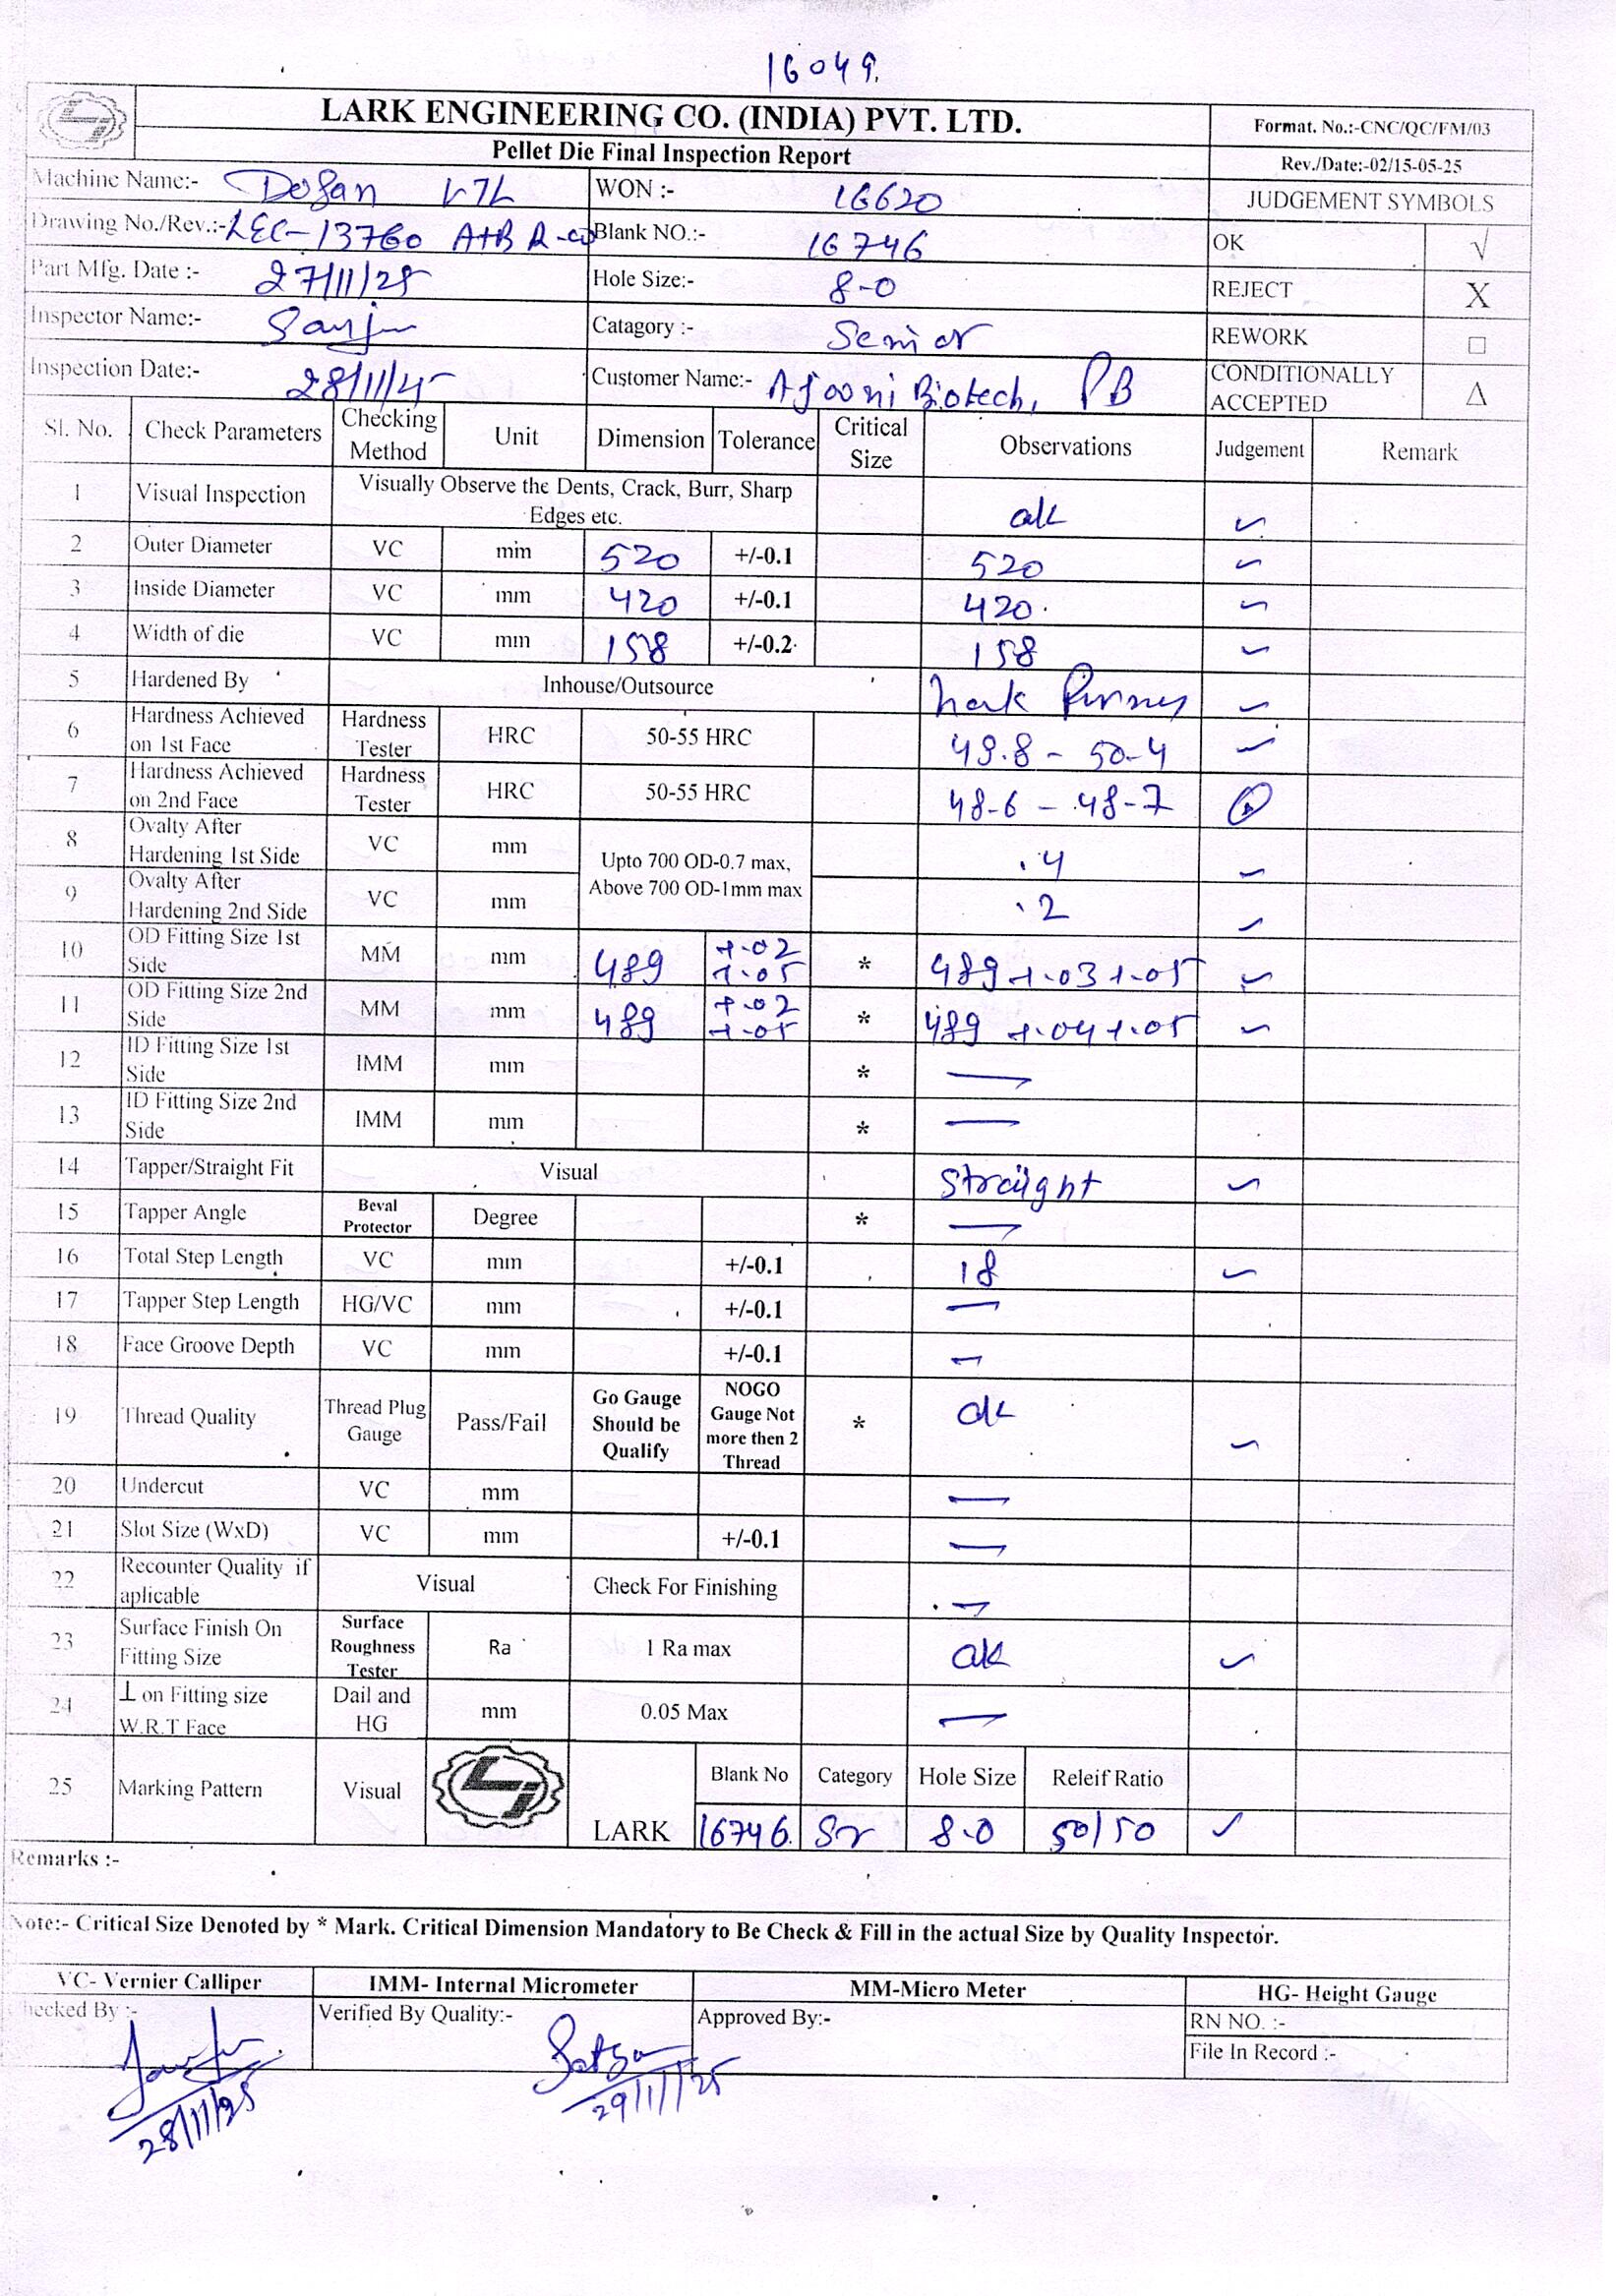 16049.
LARK ENGINEERING CO. (INDIA) PVT. LTD.
Pellet Die Final Inspection Report
Format. No.:-CNC/QC/FM/03
Rev./Date:-02/15-05-25
Machine Name:- VTL WON :- 16620 JUDGEMENT SYMBOLS
Drawing No./Rev.:- LEC-13760 A+B Blank NO.:- 16746 OK √
Part Mfg. Date :- 27/11/25 Hole Size:- 8-0 REJECT X
Inspector Name:- Catagory :- Senior REWORK □
Inspection Date:- 28/11/25 Customer Name:- Ajooni Biotech, PB CONDITIONALLY ACCEPTED Δ
Sl. No. Check Parameters Checking Method Unit Dimension Tolerance Critical Size Observations Judgement Remark
1 Visual Inspection Visually Observe the Dents, Crack, Burr, Sharp Edges etc. ok ✓
2 Outer Diameter VC mm 520 +/-0.1 520 ✓
3 Inside Diameter VC mm 420 +/-0.1 420. ✓
4 Width of die VC mm 158 +/-0.2 158 ✓
5 Hardened By Inhouse/Outsource ✓
6 Hardness Achieved on 1st Face Hardness Tester HRC 50-55 HRC 49.8 - 50-4 ✓
7 Hardness Achieved on 2nd Face Hardness Tester HRC 50-55 HRC 48-6 - 48-7
8 Ovalty After Hardening 1st Side VC mm Upto 700 OD-0.7 max, Above 700 OD-1mm max .4 ✓
9 Ovalty After Hardening 2nd Side VC mm .2 ✓
10 OD Fitting Size 1st Side MM mm 489 +.02 +.05 * 489 +.03 +.05 ✓
11 OD Fitting Size 2nd Side MM mm 489 +.02 +.05 * 489 +.04 +.05 ✓
12 ID Fitting Size 1st Side IMM mm * —
13 ID Fitting Size 2nd Side IMM mm * —
14 Tapper/Straight Fit Visual Straight ✓
15 Tapper Angle Beval Protector Degree * —
16 Total Step Length VC mm +/-0.1 18 ✓
17 Tapper Step Length HG/VC mm +/-0.1 —
18 Face Groove Depth VC mm +/-0.1 —
19 Thread Quality Thread Plug Gauge Pass/Fail Go Gauge Should be Qualify NOGO Gauge Not more then 2 Thread * ok ✓
20 Undercut VC mm —
21 Slot Size (WxD) VC mm +/-0.1 —
22 Recounter Quality if aplicable Visual Check For Finishing —
23 Surface Finish On Fitting Size Surface Roughness Tester Ra 1 Ra max ok ✓
24 ⊥ on Fitting size W.R.T Face Dail and HG mm 0.05 Max —
25 Marking Pattern Visual LARK Blank No Category Hole Size Releif Ratio
16746. Sr 8.0 50/50 ✓
Remarks :-
Note:- Critical Size Denoted by * Mark. Critical Dimension Mandatory to Be Check & Fill in the actual Size by Quality Inspector.
VC- Vernier Calliper IMM- Internal Micrometer MM-Micro Meter HG- Height Gauge
Checked By :- Verified By Quality:- Approved By:- RN NO. :-
File In Record :-
28/11/25 29/11/25